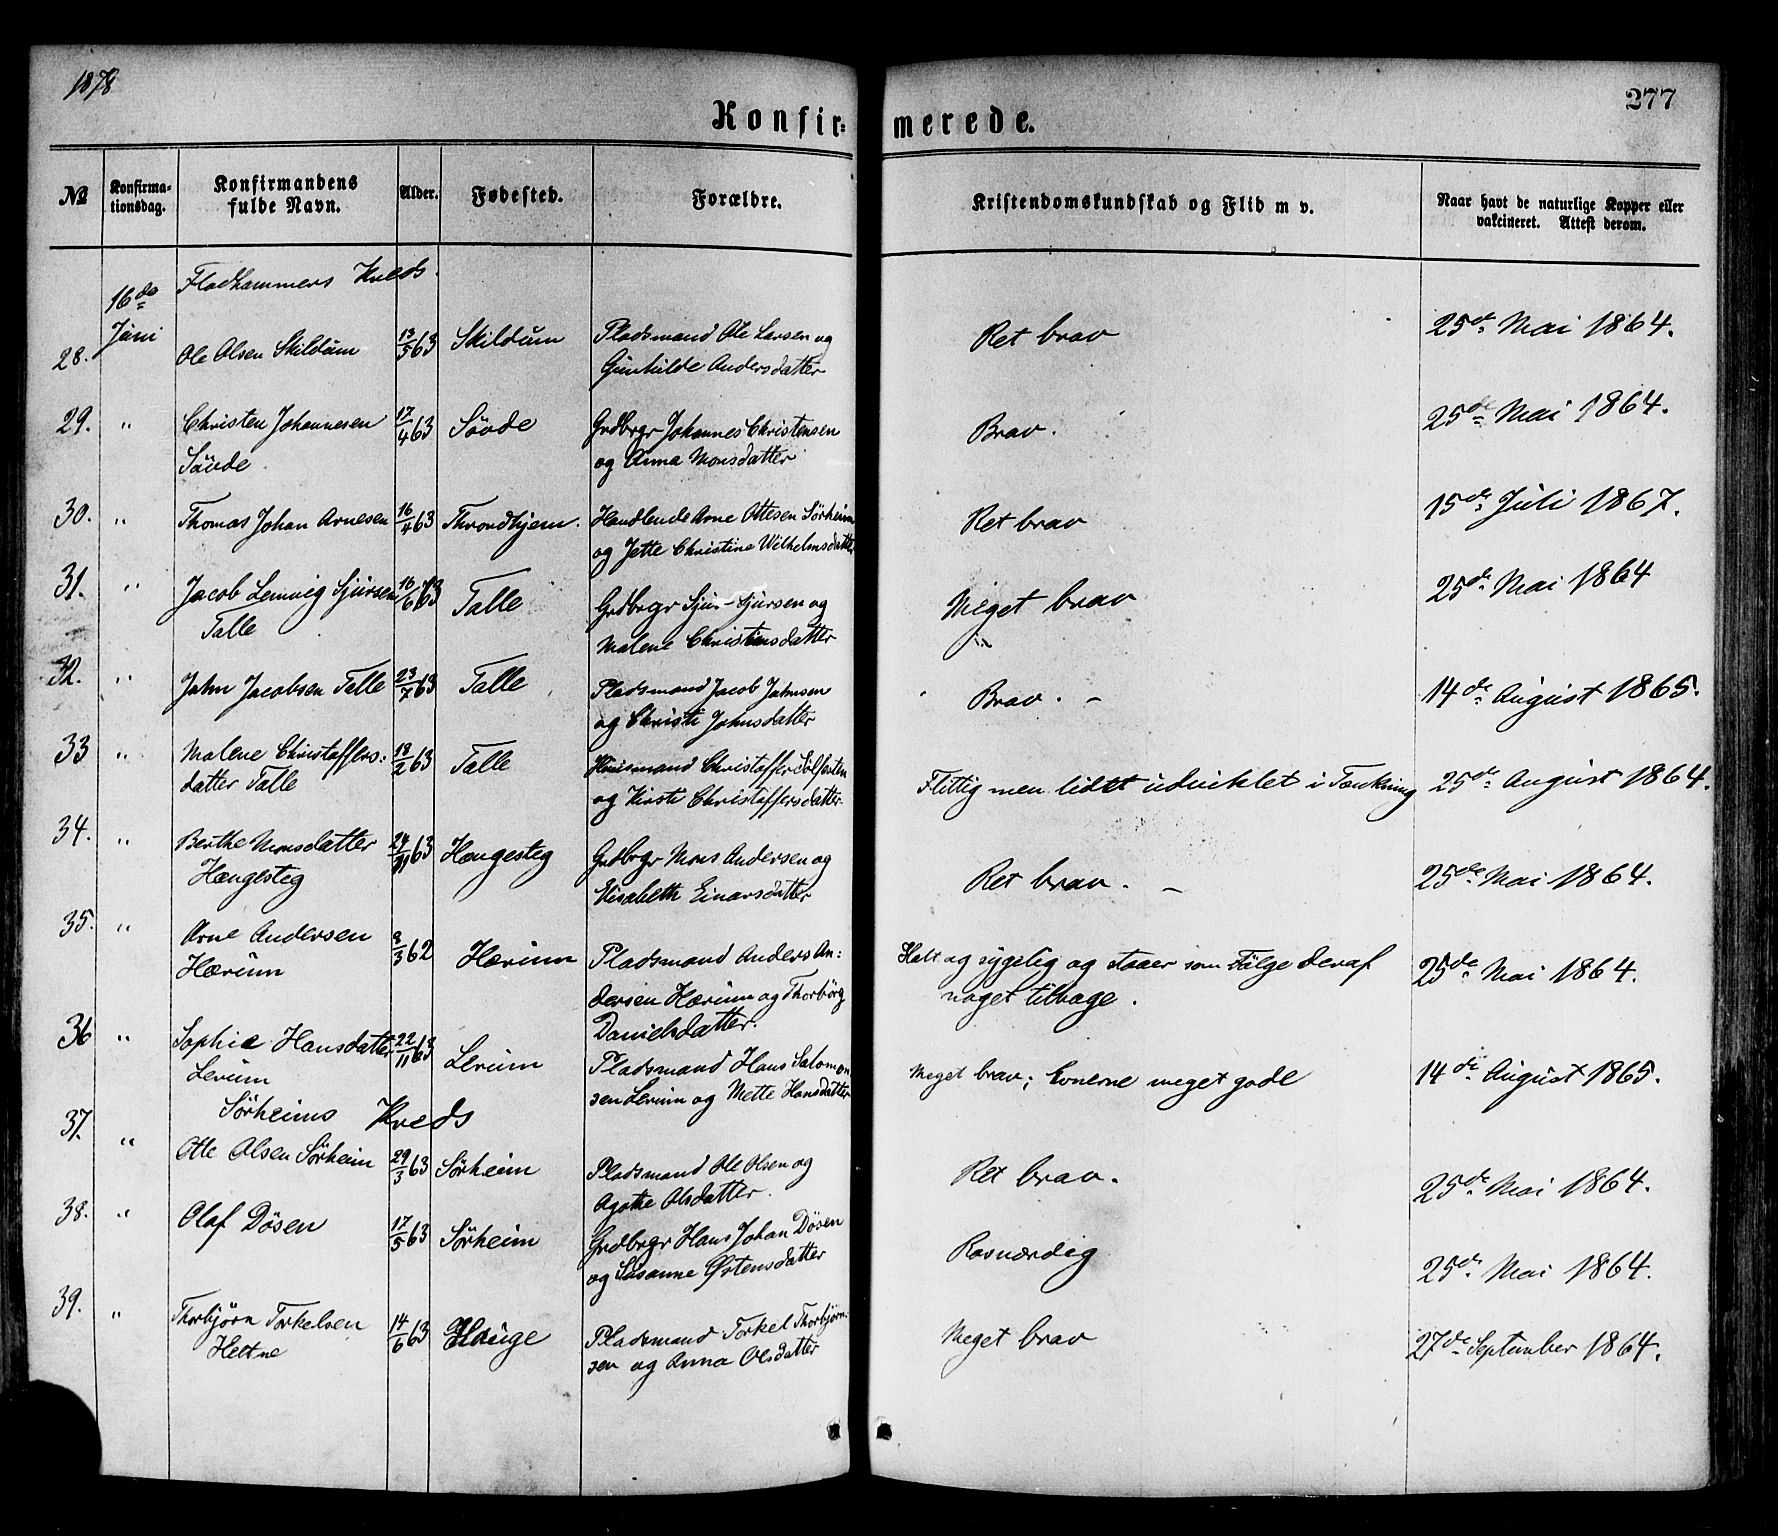 1878
277
Konfir=
merede.
No
Konfirma-
tionsdag.
Konfirmandens
fulde Navn.
Alder.
Fødested.
Forældre.
Kristendomskundskab og Flid m v.
Naar havt de naturlige Kopper eller
vakcineret. Attest derom.
Fladhammers Kreds.
16de
Juni
28. Ole Olsen Skildum 13/5 63 Skildum Pladsmand Ole Larsen og Ret brav 25de Mai 1864.
Gunhilde Andersdatter
29. " Christen Johannesen 17/4 63 Søvde Grdbrgr Johannes Christensen Brav. 25de Mai 1864.
Søvde og Anna Monsdatter
30. " Thomas Johan Arnesen 16/4 63 Throndhjem. Handlende Arne Ottesen Sørheim Ret brav 15de Juli 1867.
og Jette Christine Wilhelmsdatter
31. " Jacob Lemvig Sjursen 16/6 63 Talle Grdbrgr Sjur Sjursen og Meget brav 25de Mai 1864
Talle Malene Christensdatter
32. " John Jacobsen Talle 23/7 63 Talle Pladsmand Jacob Johnsen Brav. - 14de August 1865.
og Christi Johnsdatter
33 " Malene Christaffers= 18/2 63 Talle Huusmand Christaffer Sølfesten Flittig men lidet udviklet i Tænkning 25de August 1864.
datter Talle og Kirsti Christaffersdatter.
34. " Berthe Monsdatter 24/11 63 Hængesteg Grdbrgr Mons Andersen og Ret brav. - 25de Mai 1864.
Hængesteg Elisabeth Einarsdatter
35. " Arne Andersen 9/3 62 Hærum Pladsmand Anders An= Halt og sygelig og staaer som Følge deraf 25de Mai 1864.
Hærum dersen Hærum og Thorbørg noget tilbage.
Danielsdatter.
36 " Sophie Hansdatter 22/11 63 Lerum Pladsmand Hans Salomon Meget brav; Evnerne meget gode 14de August 1865.
Lerum sen Lerum og Mette Hansdatter
Sørheims Kreds
37. " Otte Olsen Sørheim 29/3 63 Sørheim Pladsmand Ole Olsen og Ret brav. 25de Mai 1864.
Agathe Olsdatter.
38. " Olaf Døsen 17/5 63 Sørheim Grdbrgr Hans Johan Døsen Rosværdig 25de Mai 1864.
og Susanne Østensdatter
39. " Thorbjørn Torkelsen 14/6 63 Hauge Pladsmand Torkel Thorbjørn= Meget brav 27de September 1864.
Heltne sen og Anna Olsdatter